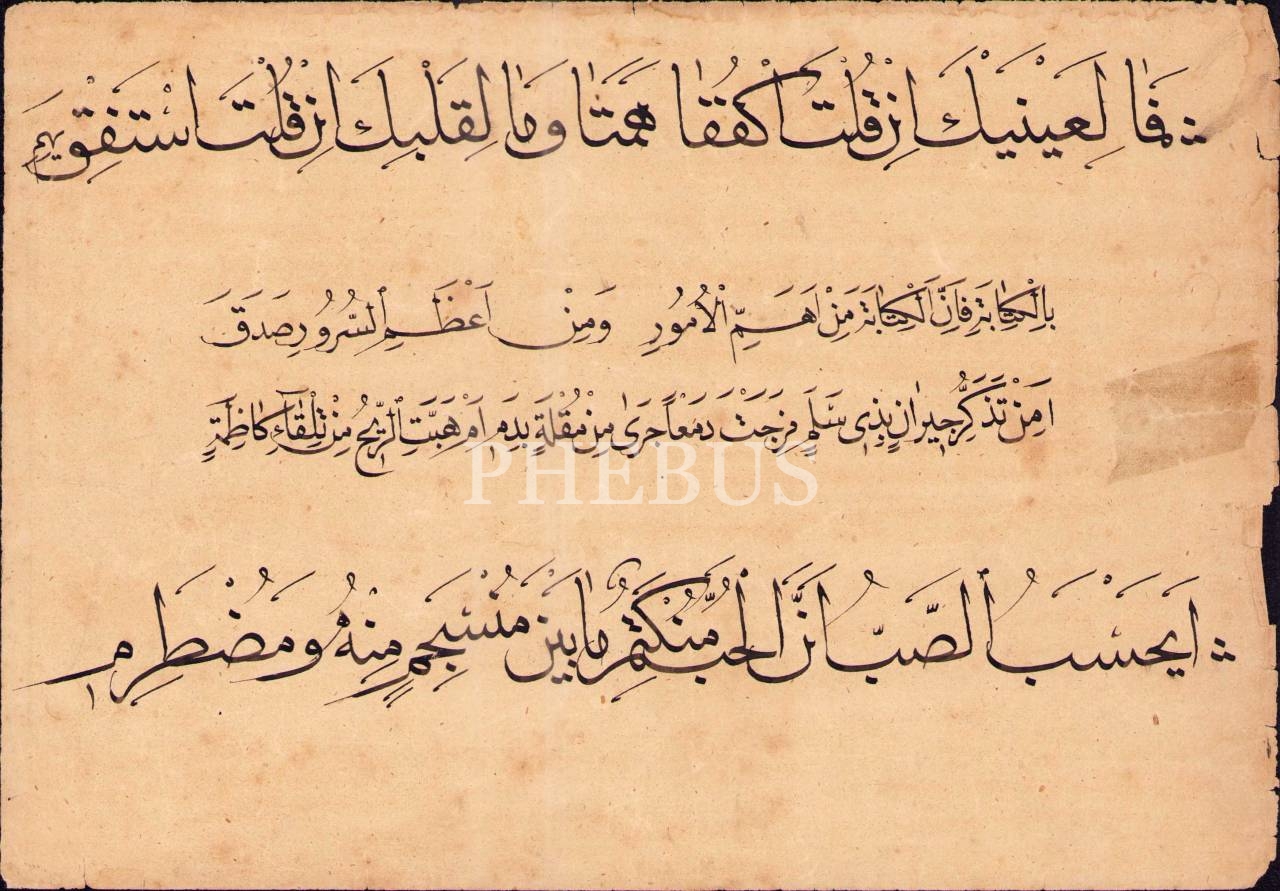 فَمَا لِعَيْنَيْكَ اِنْ قُلْتَ اكْفُفَا هَمَتَا وَمَا لِقَلْبِكَ اِنْ قُلْتَ اسْتَفِقْ يَهِمِ
بِالْكِتَابَةِ فَاِنَّ الْكِتَابَةَ مِنْ اَهَمِّ الْاُمُورِ وَمِنْ اَعْظَمِ السُّرُورِ صَدَقَ
اَمِنْ تَذَكُّرِ جِيرَانٍ بِذِى سَلَمٍ مَزَجْتَ دَمْعًا جَرَى مِنْ مُقْلَةٍ بِدَمِ اَمْ هَبَّتِ الرِّيحُ مِنْ تِلْقَاءِ كَاظِمَةٍ
PHEBUS
اَيَحْسَبُ الصَّبُّ اَنَّ الْحُبَّ مُنْكَتِمٌ مَا بَيْنَ مُنْسَجِمٍ مِنْهُ وَمُضْطَرِمِ